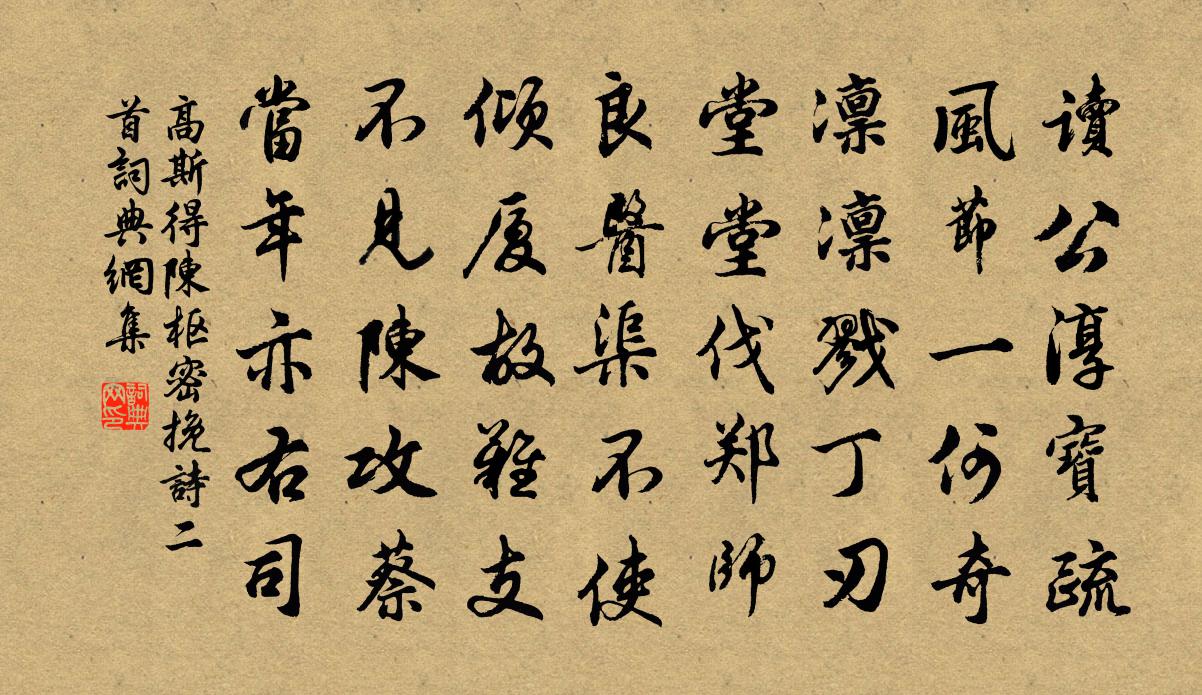 讀公淳寶疏
風節一何奇
凛凛戮丁刃
堂堂伐郑師
良醫渠不使
傾厦故難支
不見陳攻蔡
當年亦右司
高斯得陳枢密挽詩二
首詞典網集
詞典
网印